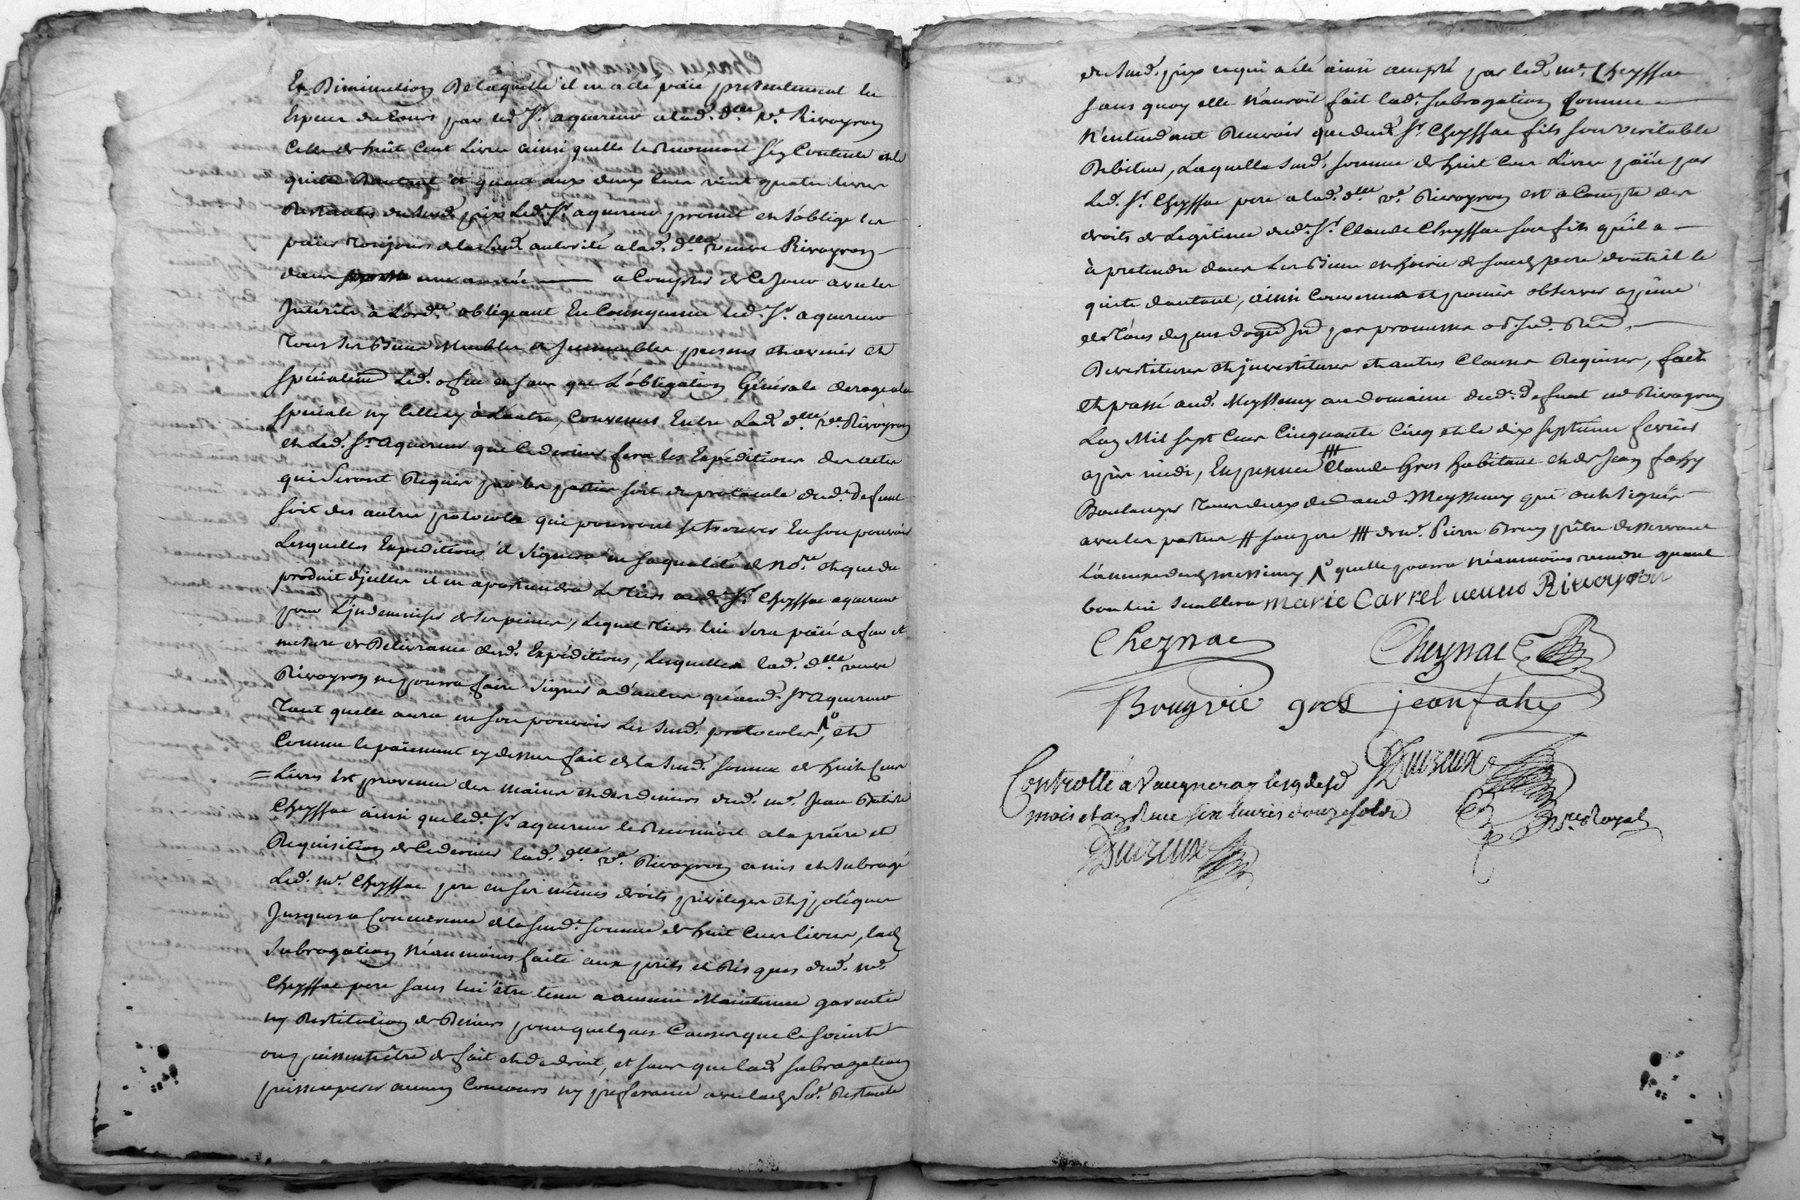 En Diminution De laquelle il en a été païé presentement en
Especes du Cours par led. Sr. aquereur a lad. dlle. ve. Rivoyron
Celle de huit Cent Livres ainsi quelle le Reconnoit s'en Contente et le
quitte D'autant et quant aux deux Cens vingt quatre livres
Restantes du susd. prix Led. Sr. aquereur promet et s'oblige les
païer toujours de la susd. autorité a lad. dlle. veuve Rivoyron
dans une année a Compter de Ce Jour avec les
Intérêts à L'ord.re obligeant En Consequence led. Sr. aquereur
Tous ses Biens Meubles et Immeubles presens et avenir et
Spécialement Led. office sans que L'obligation Générale deroge a la
speciale ny Celle cy à L'autre, Convenus Entre Lad. dlle. ve. Rivoyron
et Led. Sr. aquereur que Ce dernier fera les Expeditions des actes
qui seront Requis par les parties soit du protocole dud. defunt
soit des autres protocoles qui pourront se trouver En son pouvoir
Lesquelles Expeditions il signera en sa qualité de nore. et que du
produit d'jcelles il en apartiendra le tiers aud. Sr. Cheyssac aquereur
pour L'jndemniser de ses peines, Lequel tiers lui sera païé a fur et
mesure de Délivrance desd. Expéditions, Lesquelles lad. dlle. veuve
Rivoyron ne poura faire signer a d'autres qu'aud. Sr. aquereur
Tant quelle aura en son pouvoir Les susd. protocoles, et
Comme le païement cy dessus fait de la susd. somme de huit Cens
= Livres est provenu des mains et des deniers dud. me. Jean Batiste
Cheyssac ainsi que led. Sr. aquereur le Reconnoit a la prière et
Requisition de Ce dernier lad. dlle. ve. Rivoyron a mis et subrogé
Led. me. Cheyssac pere en ses mêmes droits privileges et jpotèques
Jusques a Concurrence de la susd. somme de huit Cens livres, lad.
Subrogation Néanmoins faite aux perils et Risques dud. me.
Cheyssac pere sans lui être tenu a aucune Maintenue garentie
ny Restitution de Deniers pour quelques Causes que Ce soient
ou puissent être de fait et de droit, et sans que lad. subrogation
puisse operer aucun Concours ny preference avec lad. Restante
du susd. prix ce qui a été ainsi accepté par led. me. Cheyssac
sans quoy elle n'auroit fait lad. subrogation Comme
N'entendant Recevoir que dud. Sr. Cheyssac fils son veritable
Debiteur, Laquelle susd. somme de huit Cens Livres païée par
Led. Sr. Cheyssac pere a lad. dlle. ve. Rivoyron est a Compte des
droits de Legitime dud. Sr. Claude Cheyssac son fils qu'il a
à pretendre dans Les Biens et hoirie de sond. pere dont il le
quitte d'autant, ainsi Convenus et promis observer a peine
de tous depens par promesses
Devestitures et jnvestitures et autres Clauses Requises, fait
et passé aud. Meyssimy au domaine dud. defunt me Rivoyron
L'an Mil sept Cens Cinquante Cinq et le dix septieme fevrier
après midi, En presence Claude Gros habitant et de Jean fahy
Boulanger tous deux dud. Meyssimy qui ont signés
avec les parties # son pere ### de me. Pierre prêtre desservant
L'annexe de Meyssimy quelle poura néanmoins vendre quand
bon lui semblera marie Carrel veuve Rivoyron
Cheyssac Cheyssac
Bruyrie gros jean fahy
Duizeux
Controllé à Vaugneray le 19 desd.
mois et an Recu six livres douze sols
Nre. Royal
Duizeux